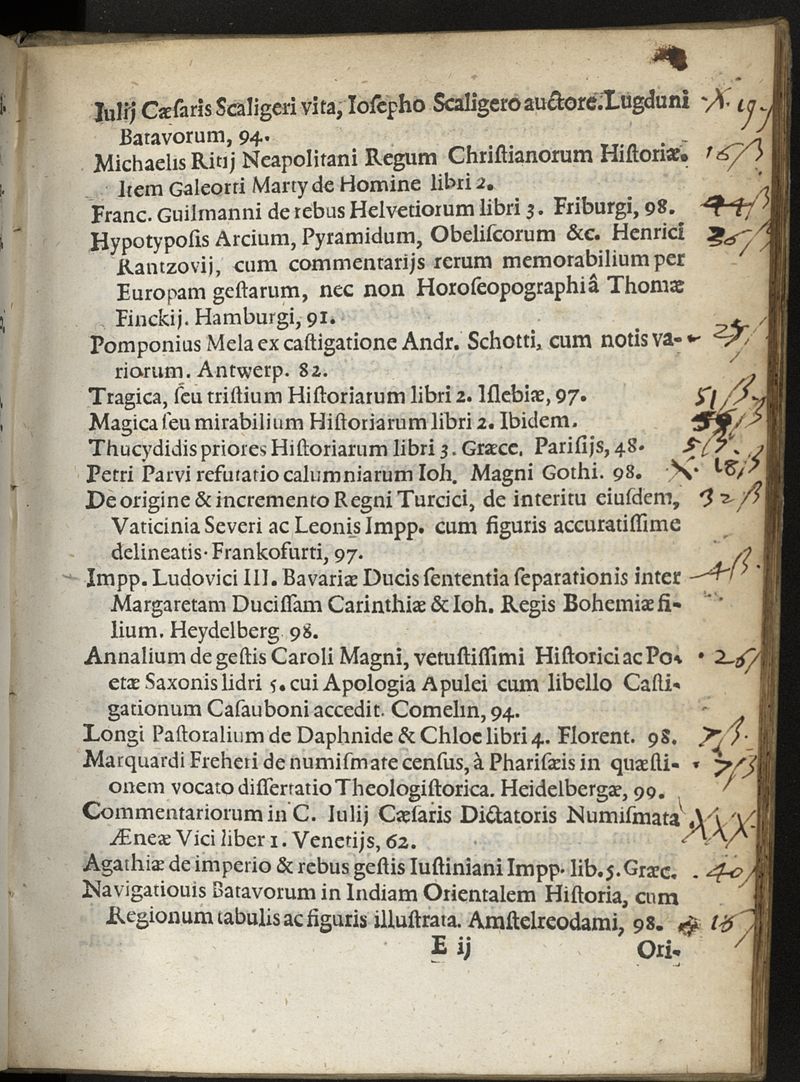 Iulij Cæſaris Scaligeri vita, Ioſepho Scaligero auctore. Lugduni
Batavorum, 94.
Michaelis Ritij Neapolitani Regum Chriſtianorum Hiſtoriæ.
Item Galeotti Marty de Homine libri 2.
Franc. Guilmanni de rebus Helvetiorum libri 3. Friburgi, 98.
Hypotypoſis Arcium, Pyramidum, Obeliſcorum &c. Henrici
Rantzovij, cum commentarijs rerum memorabilium per
Europam geſtarum, nec non Horoſeopographiâ Thomæ
Finckij. Hamburgi, 91.
Pomponius Mela ex caſtigatione Andr. Schotti, cum notis va-
riorum. Antwerp. 82. 25
Tragica, ſeu triſtium Hiſtoriarum libri 2. Iſlebiæ, 97. 51
Magica ſeu mirabilium Hiſtoriarum libri 2. Ibidem.
Thucydidis priores Hiſtoriarum libri 3. Græce. Pariſijs, 48.
Petri Parvi refutatio calumniarum Ioh. Magni Gothi. 98. X. 18
De origine & incremento Regni Turcici, de interitu eiuſdem, 32
Vaticinia Severi ac Leonis Impp. cum figuris accuratiſſime
delineatis. Frankofurti, 97.
Impp. Ludovici III. Bavariæ Ducis ſententia ſeparationis inter
Margaretam Duciſſam Carinthiæ & Ioh. Regis Bohemiæ fi-
lium. Heydelberg 98.
Annalium de geſtis Caroli Magni, vetuſtiſſimi Hiſtorici ac Po-
etæ Saxonis lidri 5. cui Apologia Apulei cum libello Caſti-
gationum Caſauboni accedit. Comelin, 94.
Longi Paſtoralium de Daphnide & Chloe libri 4. Florent. 98. 7
Marquardi Freheri de numiſmate cenſus, à Phariſæis in quæſti- 7
onem vocato diſſertatio Theologiſtorica. Heidelbergæ, 99.
Commentariorum in C. Iulij Cæſaris Dictatoris Numiſmata XXX.
Æneæ Vici liber 1. Venetijs, 62.
Agathiæ de imperio & rebus geſtis Iuſtiniani Impp. lib. 5. Græc. 40
Navigatiouis Batavorum in Indiam Orientalem Hiſtoria, cum
Regionum tabulis ac figuris illuſtrata. Amſtelreodami, 98.
E ij Ori-